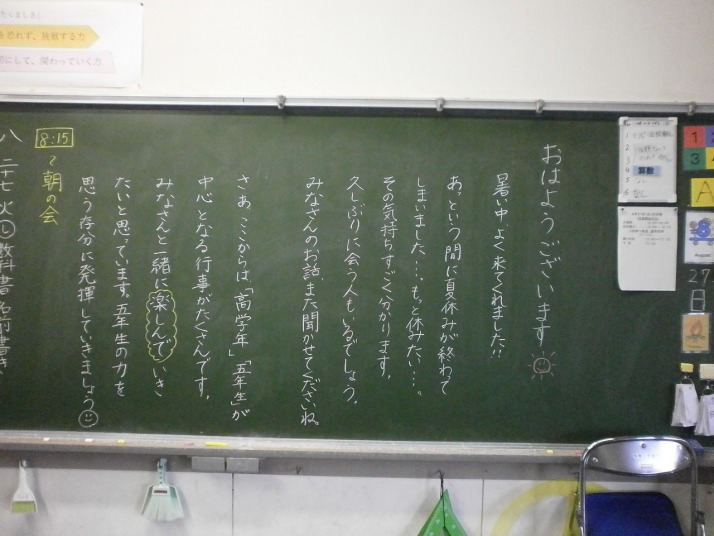 を恐れず、挑戦する力
にして、関わっていく力
おはようございます
暑い中、よく来てくれました!!
あっという間に夏休みが終わって
しまいました…。もっと休みたい…。
その気持ちすごく分かります。
久しぶりに会う人もいるでしょう。
みなさんのお話、また聞かせてくださいね。
さあ、ここからは「高学年」「五年生」が
中心となる行事がたくさんです。
みなさんと一緒に楽しんでいき
たいと思っています。五年生の力を
思う存分に発揮していきましょう
8:15
~朝の会
八 二十七 火 し 教科書 名前書き
算数
1
2
3
4
5
6 なし
1
3
4
A
8
August
27
日